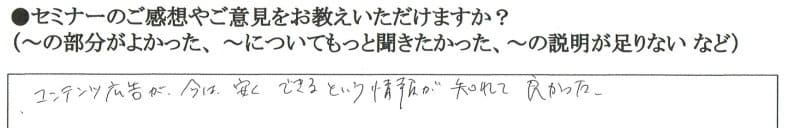 ●セミナーのご感想やご意見をお教えいただけますか？
（～の部分がよかった、～についてもっと聞きたかった、～の説明が足りない など）
コンテンツ広告が、今は、安く できるという情報が 知れて 良かった。